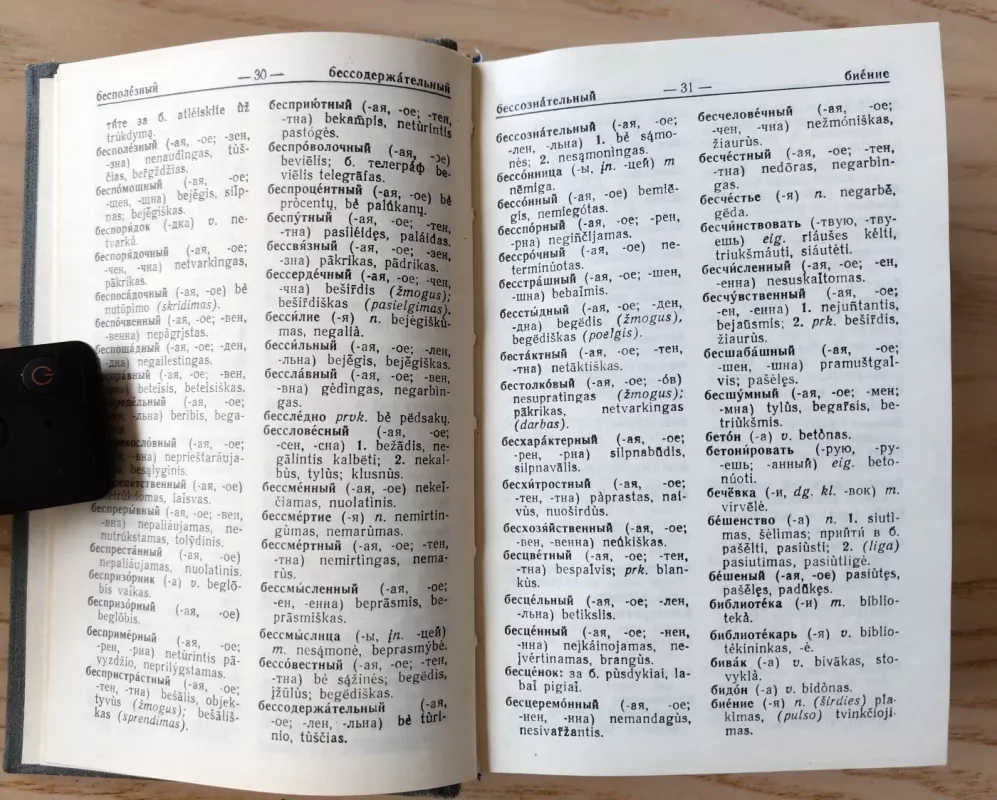 бесполе́зный — 30 — бессодержа́тельный
ти́те за б. atléiskite ùž
trùkdymą.
бесполе́зный (-ая, -ое; -зен,
-зна) nenaudìngas, tùš-
čias, bergždžias.
беспо́мощный (-ая, -ое;
-щен, -щна) bejė̃gis, silp-
nas; bejė̃giškas.
беспоря́док (-дка) v. ne-
tvarkà.
беспоря́дочный (-ая, -ое;
-чен, -чна) netvarkìngas,
pakrìkas.
беспоса́дочный (-ая, -ое) bè
nutūpìmo (skridimas).
беспо́чвенный (-ая, -ое; -вен,
-венна) nepàgrįstas.
беспоща́дный (-ая, -ое; -ден,
-дна) negailestìngas.
(-ая, -ое; -вен,
beteĩsis, beteĩsiškas.
(-ая, -ое;
-льна) beribis, bega-
(-ая, -ое;
-вна) neprieštaráuja-
besąlyginis.
(-ая, -ое)
netrùkdomas, laĩsvas.
беспреры́вный (-ая, -ое; -вен,
-вна) nepaliáujamas, ne-
nutrū́kstamas, tolýdinis.
беспреста́нный (-ая, -ое)
nepaliáujamas, nuolatìnis.
беспризо́рник (-а) v. beglõ-
bis vaĩkas.
беспризо́рный (-ая, -ое)
beglõbis.
бесприме́рный (-ая, -ое;
-рен, -рна) neturìntis pa-
vyzdžio, neprilýgstamas.
беспристра́стный (-ая, -ое;
-тен, -тна) bešãlis, objek-
tyvùs (žmogus); bešãliš-
kas (sprendimas).
бесприю́тный (-ая, -ое, -тен,
-тна) bekam̃pis, neturìntis
pastógės.
беспро́волочный (-ая, -ое)
bevièlis; б. телегра́ф be-
vièlis telegrãfas.
беспроце́нтный (-ая, -ое) bè
pròcentų, bè palū̃kanų.
беспу́тный (-ая, -ое, -тен,
-тна) pasiléidęs, paláidas.
бессвя́зный (-ая, -ое; -зен,
-зна) pakrìkas, padrìkas.
бессерде́чный (-ая, -ое, -чен,
-чна) bešir̃dis (žmogus);
bešir̃diškas (pasielgimas).
бесси́лие (-я) n. bejėgiškù-
mas, negalià.
бесси́льный (-ая, -ое, -лен,
-льна) bejė̃gis, bejė̃giškas.
бессла́вный (-ая, -ое, -вен,
-вна) gėdìngas, negarbìn-
gas.
бессле́дно prvk. bè pė̃dsakų.
бесслове́сный (-ая, -ое;
-сен, -сна) 1. bežãdis, ne-
gãlintis kalbėti; 2. nekal-
bùs, tylùs; klusnùs.
бессме́нный (-ая, -ое) nekei-
čiamas, nuolatìnis.
бессме́ртие (-я) n. nemirtin-
gùmas, nemarùmas.
бессме́ртный (-ая, -ое; -тен,
-тна) nemirtìngas, nema-
rùs.
бессмы́сленный (-ая, -ое;
-ен, -енна) beprãsmis, be-
prãsmiškas.
бессмы́слица (-ы, įn. -цей)
m. nesą́monė, beprasmýbė.
бессо́вестный (-ая, -ое; -тен,
-тна) bè są́žinės; begė̃dis,
įžūlùs; begė̃diškas.
бессодержа́тельный (-ая,
-ое; -лен, -льна) bè tùri-
nio, tùščias.
бессозна́тельный — 31 — бие́ние
бессозна́тельный (-ая, -ое;
-лен, -льна) 1. bè są́mo-
nės; 2. nesąmonìngas.
бессо́нница (-ы, įn. -цей) m
nẽmiga.
бессо́нный (-ая, -ое) bemiẽ-
gis, nemiegótas.
бесспо́рный (-ая, -ое; -рен,
-рна) negiñčijamas.
бессро́чный (-ая, -ое) ne-
terminúotas.
бесстра́шный (-ая, -ое; -шен,
-шна) bebaĩmis.
бессты́дный (-ая, -ое; -ден,
-дна) begė̃dis (žmogus),
begė̃diškas (poelgis).
беста́ктный (-ая, -ое; -тен,
-тна) netãktiškas.
бестолко́вый (-ая, -ое; -о́в)
nesupratìngas (žmogus);
pakrìkas, netvarkìngas
(darbas).
бесхара́ктерный (-ая, -ое;
-рен, -рна) silpnabū̃dis,
silpnavãlis.
бесхи́тростный (-ая, -ое;
-тен, -тна) pàprastas, nai-
vùs, nuoširdùs.
бесхозя́йственный (-ая, -ое;
-вен, -венна) neū́kiškas.
бесцве́тный (-ая, -ое; -тен,
-тна) bespal̃vis; prk. blan-
kùs.
бесце́льный (-ая, -ое; -лен,
-льна) betìkslis.
бесце́нный (-ая, -ое; -нен,
-нна) neįkáinojamas, ne-
įvértinamas, brangùs.
бесце́нок: за б. pùsdykiai, la-
bai pigiai.
бесцеремо́нный (-ая, -ое;
-нен, -нна) nemandagùs,
nesivar̃žantis.
бесчелове́чный (-ая, -ое;
-чен, -чна) nežmóniškas,
žiaurùs.
бесче́стный (-ая, -ое; -тен,
-тна) nedõras, negarbìn-
gas.
бесче́стье (-я) n. negarbė̃,
gė́da.
бесчи́нствовать (-твую, -тву-
ешь) eig. riáušes kélti,
triukšmáuti, siaũtėti.
бесчи́сленный (-ая, -ое; -ен,
-енна) nesuskaĩtomas.
бесчу́вственный (-ая, -ое;
-ен, -енна) 1. nejuñtantis,
bejaũsmis; 2. prk. bešir̃dis,
žiaurùs.
бесшаба́шный (-ая, -ое;
-шен, -шна) pramuštgal-
vis; pašė̃lęs.
бесшу́мный (-ая, -ое, -мен;
-мна) tylùs, begar̃sis, be-
triùkšmis.
бето́н (-а) v. betònas.
бетони́ровать (-рую, -ру-
ешь; -анный) eig. beto-
núoti.
бечёвка (-и, dg. kl. -вок) m.
virvẽlė.
бе́шенство (-а) n. 1. siuti-
mas, šėlìmas; прийти́ в б.
pašė̃lti, pasiùsti; 2. (liga)
pasiutìmas, pasiùtligė.
бе́шеный (-ая, -ое) pasiùtęs,
pašė̃lęs, padū̃kęs.
библиоте́ка (-и) m. biblio-
tekà.
библиоте́карь (-я) v. biblio-
tèkininkas, -ė.
бива́к (-а) v. bivãkas, sto-
vyklà.
бидо́н (-а) v. bidònas.
бие́ние (-я) n. (širdies) pla-
kìmas, (pulso) tvinkčioji-
mas.